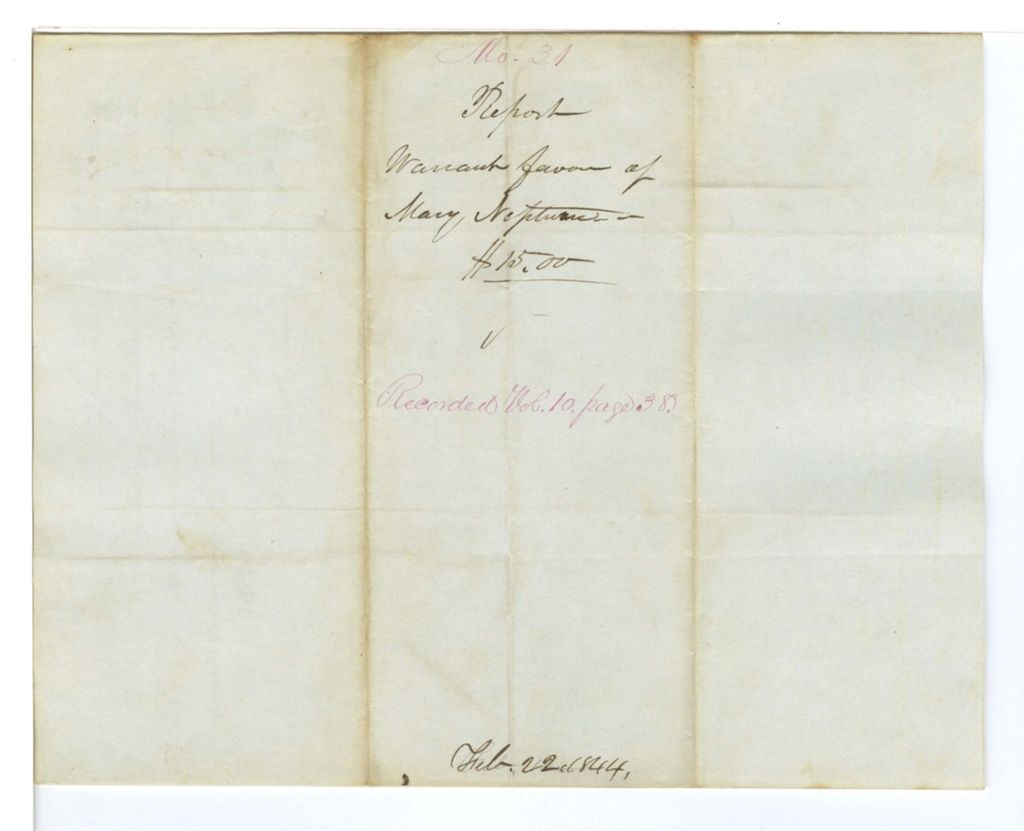 No. 31
Report
Warrant favor of
Mary Neptune - -
$15.00
Recorded Vol. 10. page 38.
Feb. 22. 1844.